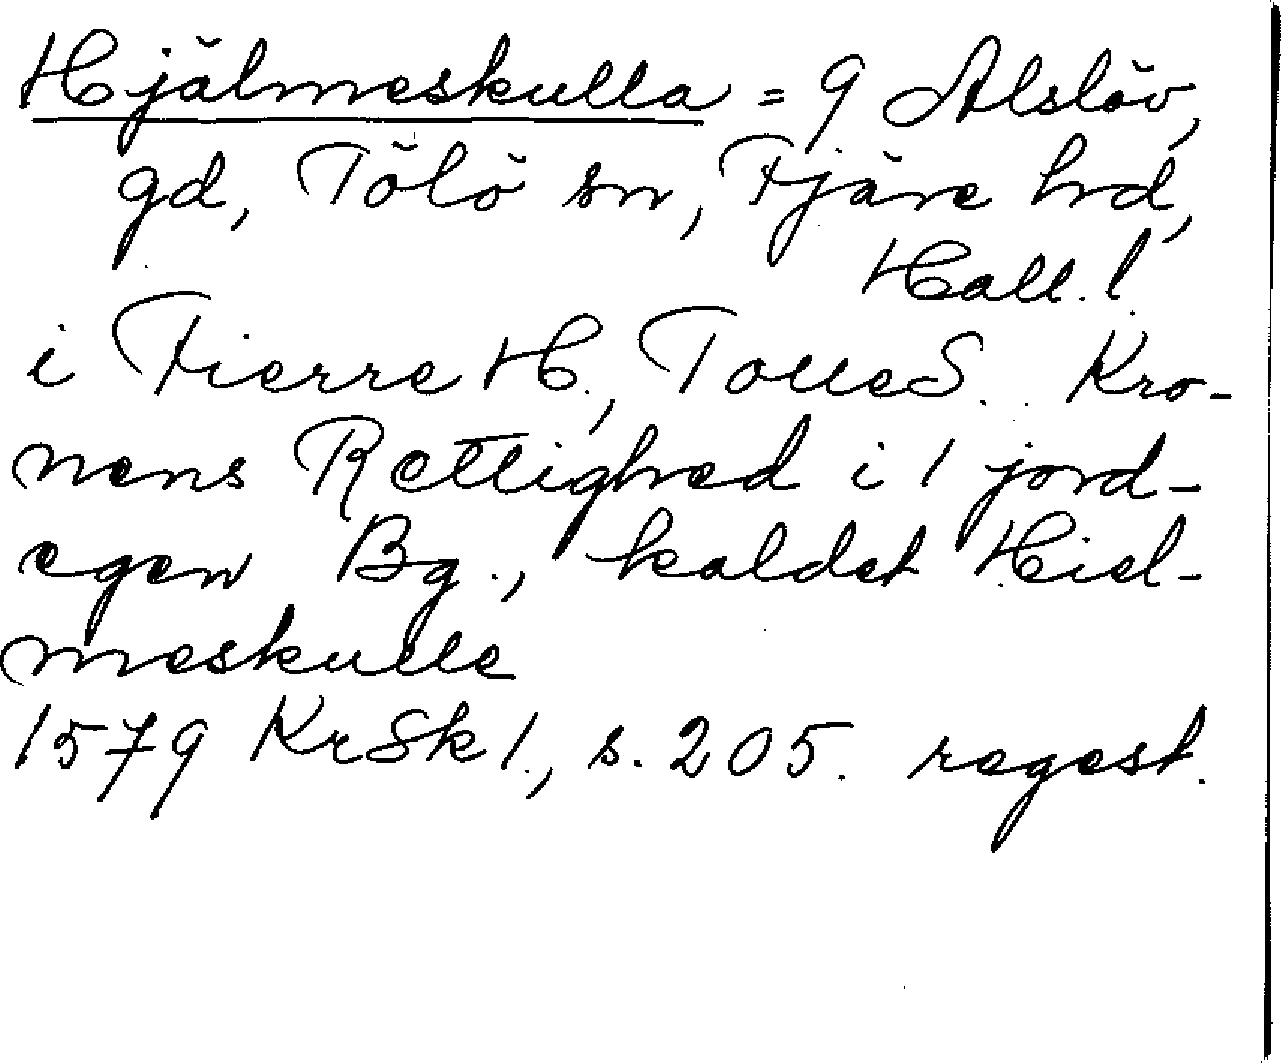 Hjälmeskulla = 9 Alslöv,
gd, Tölö sn, Fjäre hd,
Hall. l.
i Fierre H., Tolle S. Kro-
nens Rettighed i 1 jord-
egen Bg., kaldet Hiel-
meskulle
1579 KrSk 1., s. 205. regest.